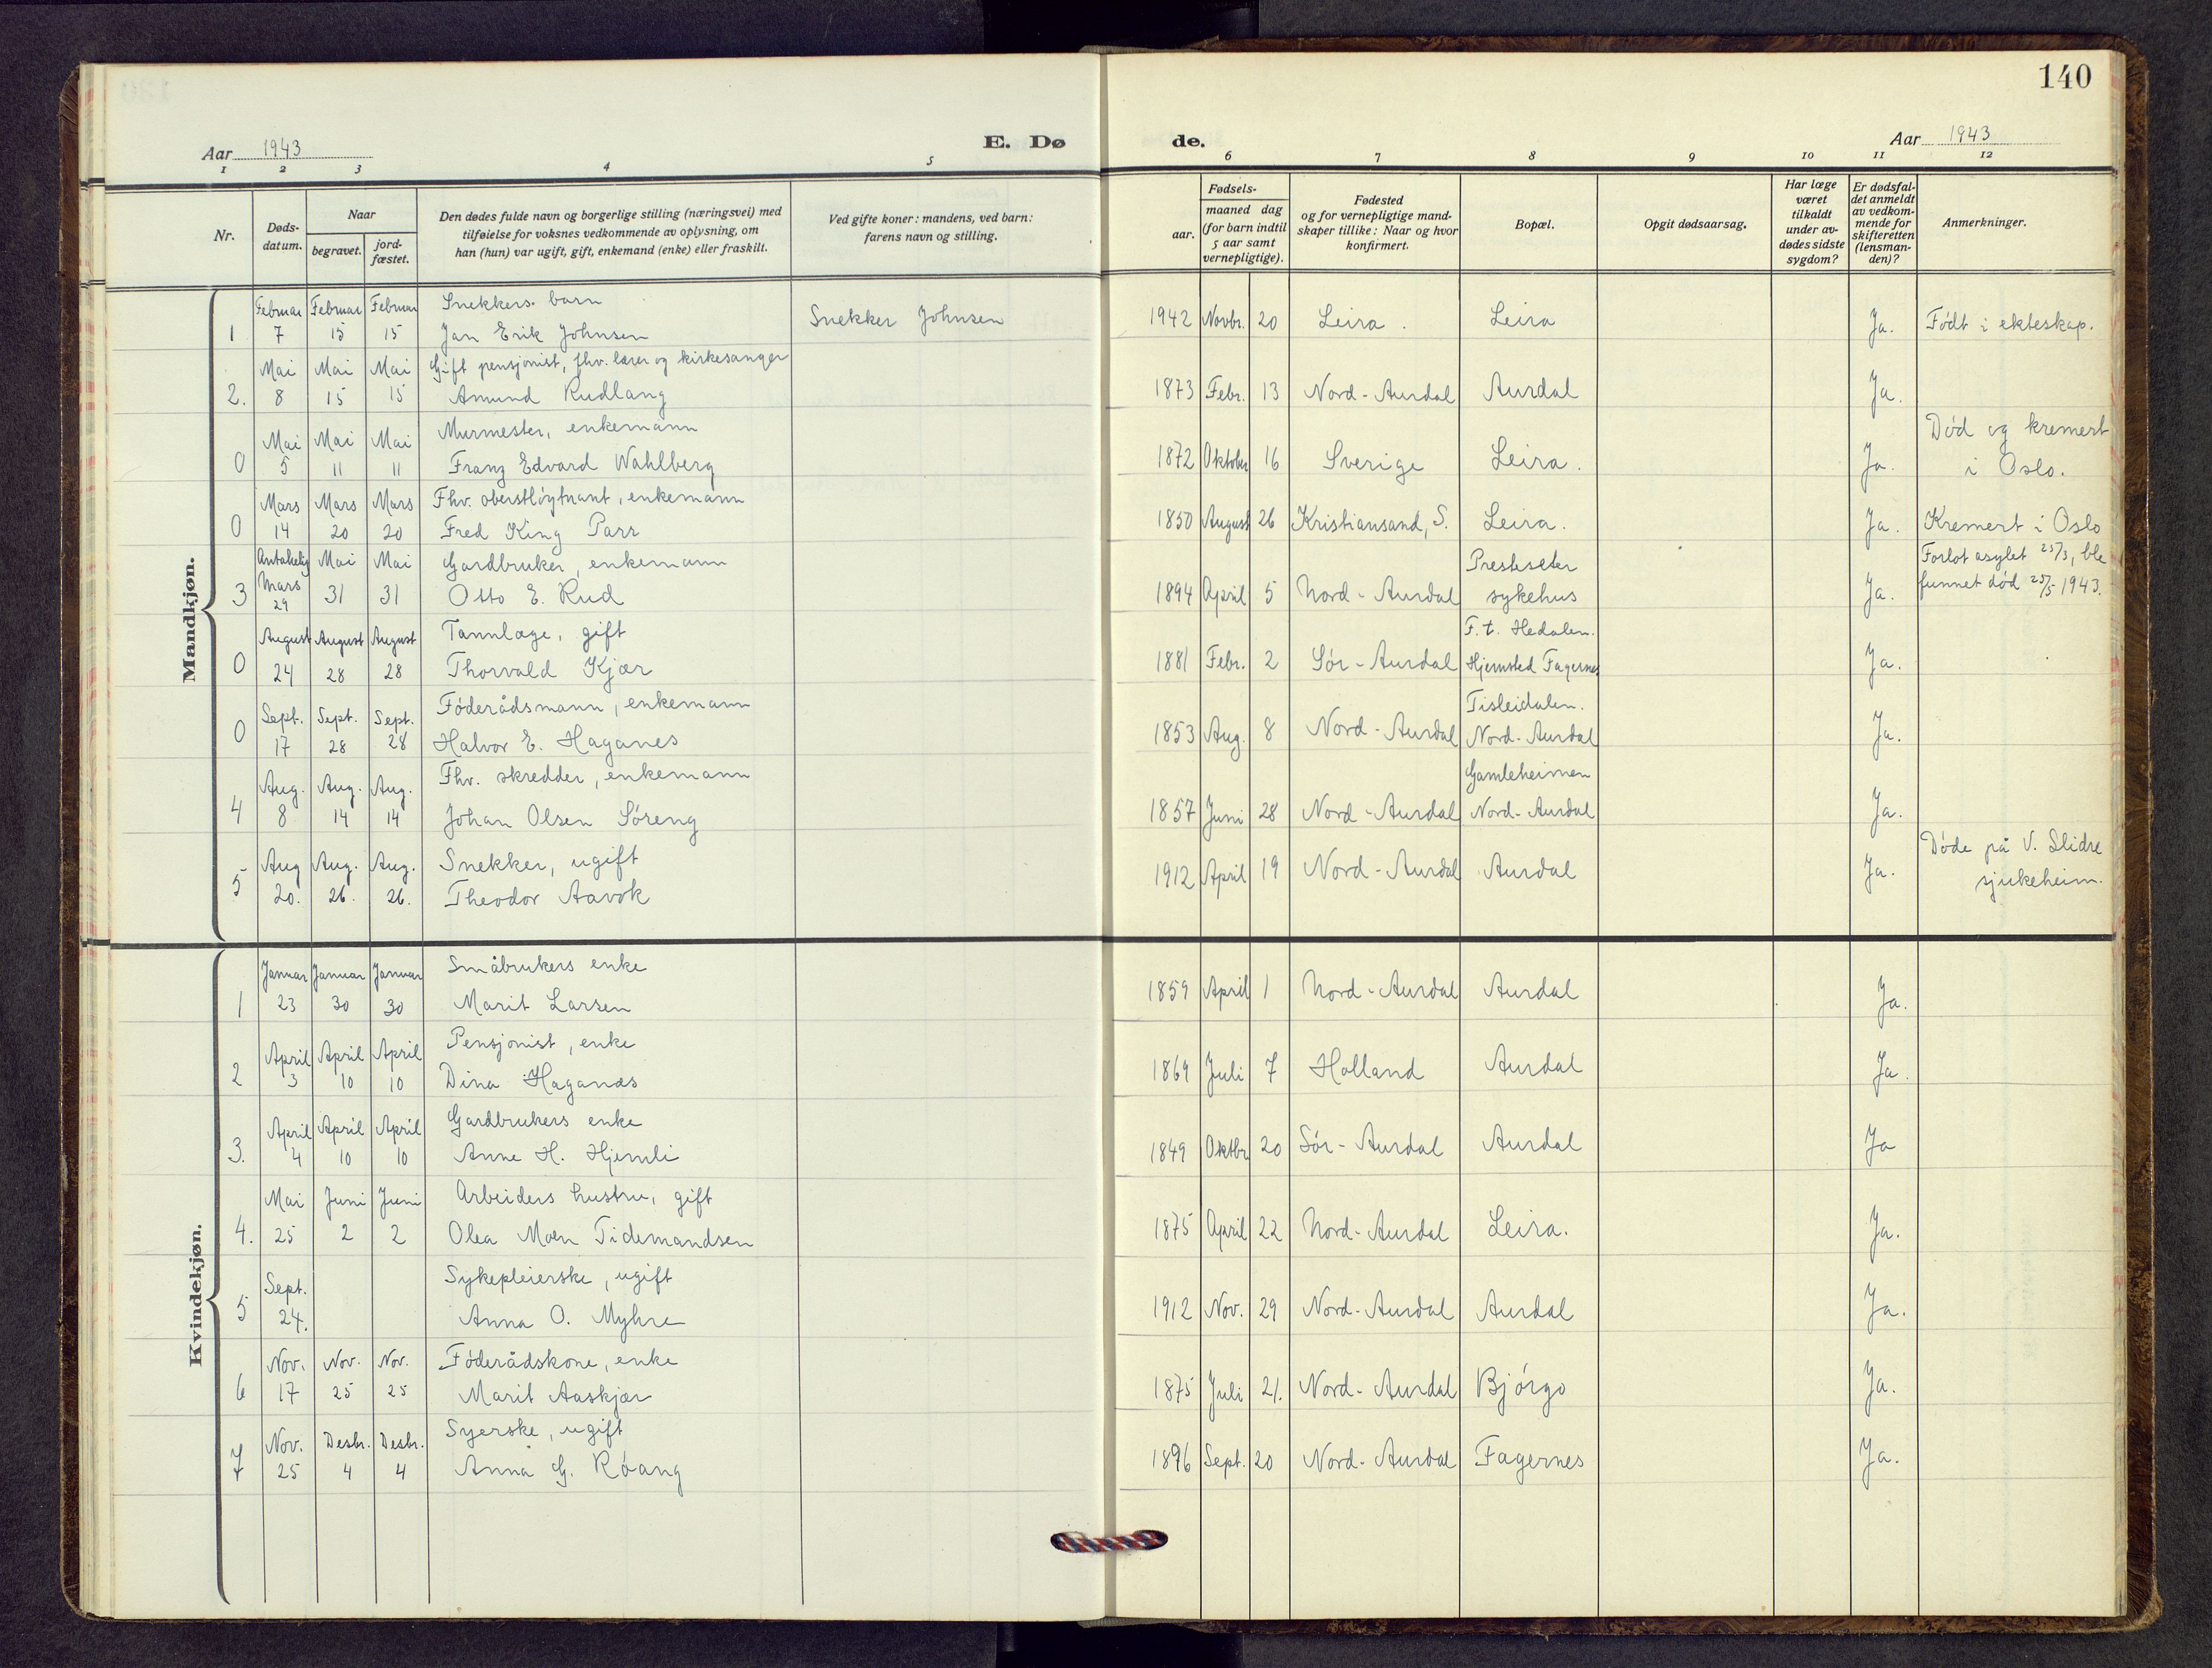 140
Aar 1943
E. Dø
de.
Aar 1943
1 2 3 4 5
6 7 8 9 10 11 12
Nr.
Døds-
datum.
Naar
begravet.
jord-
fæstet.
Den dødes fulde navn og borgerlige stilling (næringsvei) med
tilføielse for voksnes vedkommende av oplysning, om
han (hun) var ugift, gift, enkemand (enke) eller fraskilt.
Ved gifte koner: mandens, ved barn:
farens navn og stilling.
Fødsels-
aar.
maaned dag
(for barn indtil
5 aar samt
vernepligtige).
Fødested
og for vernepligtige mand-
skaper tillike: Naar og hvor
konfirmert.
Bopæl.
Opgit dødsaarsag.
Har læge
været
tilkaldt
under av-
dødes sidste
sygdom?
Er dødsfal-
det anmeldt
av vedkom-
mende for
skifteretten
(lensman-
den)?
Anmerkninger.
Mandkjøn.
Februar Februar Februar Snekkers barn
1 7 15 15 Jan Erik Johnsen Snekker Johnsen 1942 Novbr. 20 Leira. Leira Ja. Født i ekteskap.
Mai Mai Mai Gift pensjonist, fhv. lærer og kirkesanger
2. 8 15 15 Amund Rudlang 1873 Febr. 13 Nord-Aurdal Aurdal Ja.
Mai Mai Mai Murmester, enkemann Død og kremert
0 5 11 11 Franz Edvard Wahlberg 1872 Oktober 16 Sverige Leira. Ja. i Oslo.
Mars Mars Mars Fhv. oberstløytnant, enkemann
0 14 20 20 Fred King Parr 1850 August 26 Kristiansand, S. Leira. Ja. Kremert i Oslo
Antakelig Mai Mai Gardbruker, enkemann Presteseter Forlot asylet 25/3, ble
3 Mars 29 31 31 Otto E. Rud 1894 April 5 Nord-Aurdal sykehus Ja. funnet død 25/5 1943.
August August August Tannlæge, gift F. t. Hedalen.
0 24 28 28 Thorvald Kjær 1881 Febr. 2 Sør-Aurdal Hjemsted Fagernes Ja.
Sept. Sept. Sept. Føderådsmann, enkemann Tisleidalen.
0 17 28 28 Halvor E. Haganes 1853 Aug. 8 Nord-Aurdal Nord-Aurdal Ja.
Aug. Aug. Aug. Fhv. skredder, enkemann Gamleheimen
4 8 14 14 Johan Olsen Søreng 1857 Juni 28 Nord-Aurdal Nord-Aurdal Ja.
Aug Aug. Aug. Snekker, ugift Døde på V. Slidre
5 20. 26. 26. Theodor Aavok 1912 April 19 Nord-Aurdal Aurdal Ja. sjukeheim.
Kvindekjøn.
Januar Januar Januar Småbrukers enke
1 23 30 30 Marit Larsen 1859 April 1 Nord-Aurdal Aurdal Ja.
April April April Pensjonist, enke
2 3 10 10 Dina Haganæs 1869 Juli 7 Holland Aurdal Ja.
April April April Gardbrukers enke
3. 4 10 10 Anne H. Hjemli 1849 Oktbr 20 Sør-Aurdal Aurdal Ja
Mai Juni Juni Arbeiders hustru, gift
4. 25 2 2 Olea Moen Tidemandsen 1875 April 22 Nord-Aurdal Leira. Ja.
Sept. Sykepleierske, ugift
5 24. Anna O. Myhre 1912 Nov. 29 Nord-Aurdal Aurdal Ja.
Nov. Nov. Nov. Føderådskone, enke
6 17 25 25 Marit Aaskjær 1875 Juli 21. Nord-Aurdal Bjørgo Ja.
Nov. Desbr. Desbr. Syerske, ugift
7 25 4 4 Anna G. Røang 1896 Sept. 20 Nord-Aurdal Fagernes Ja.